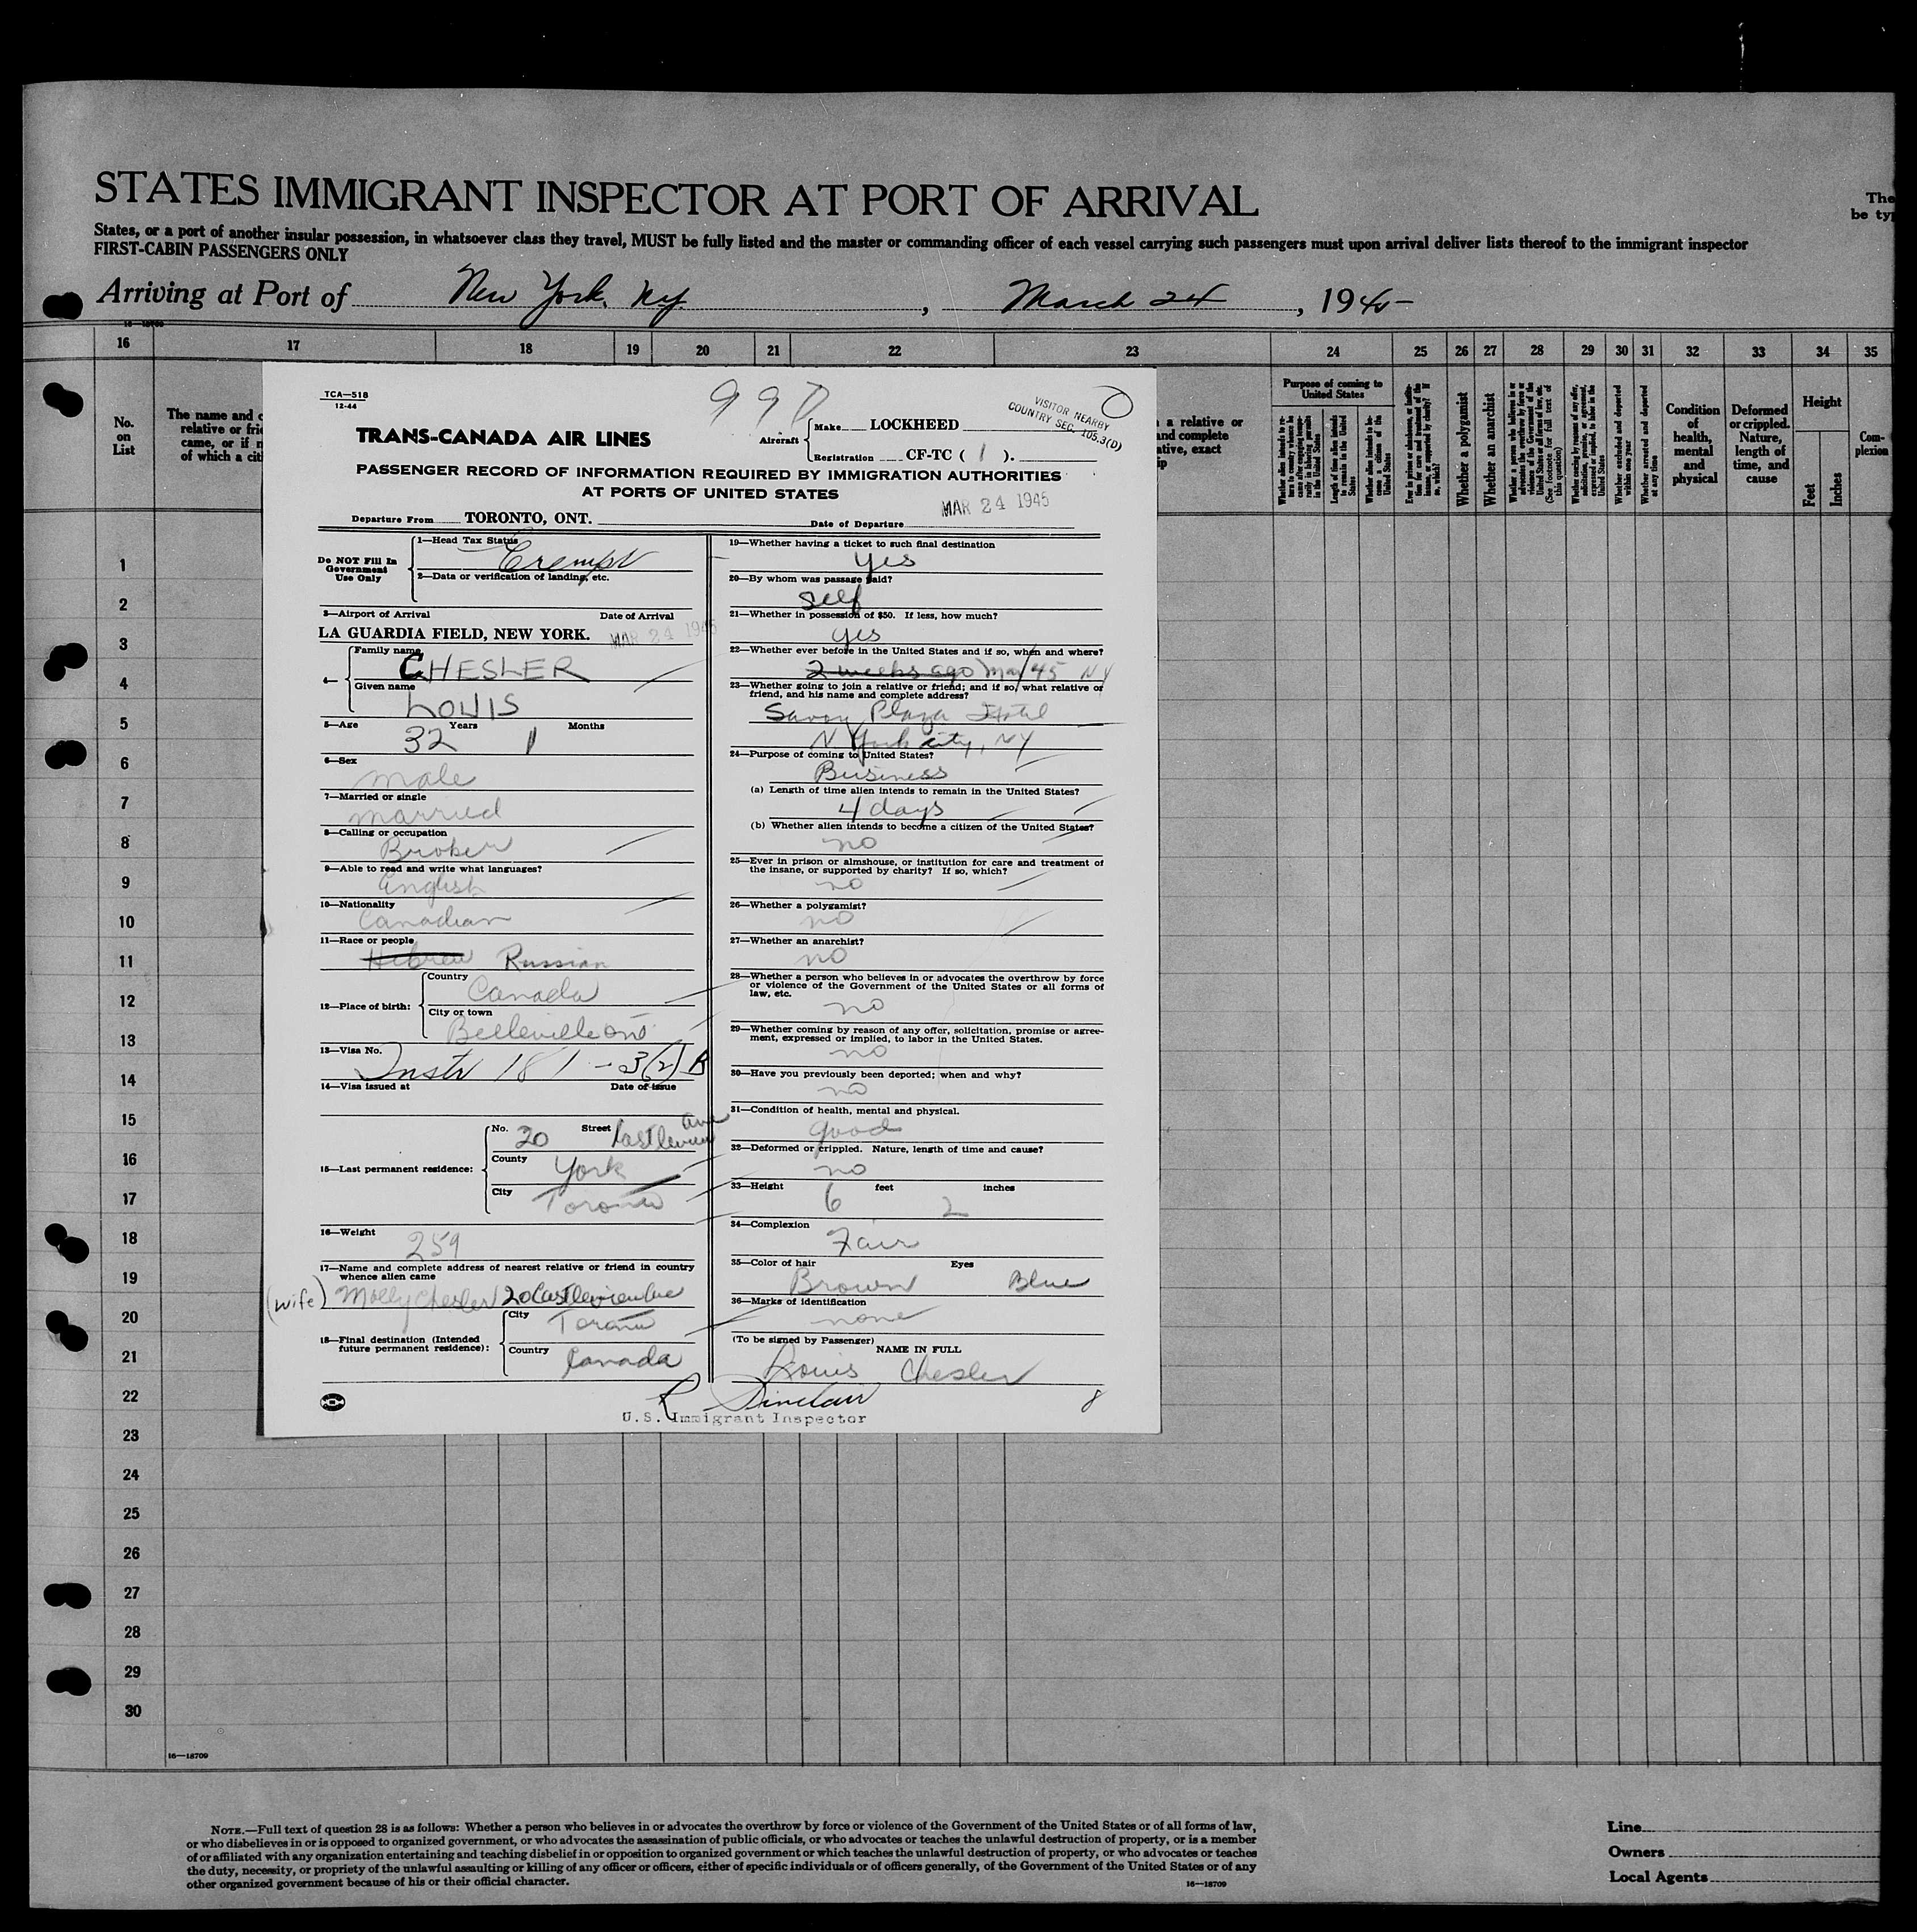 STATES IMMIGRANT INSPECTOR AT PORT OF ARRIVAL
The
be typ
States, or a port of another insular possession, in whatsoever class they travel, MUST be fully listed and the master or commanding officer of each vessel carrying such passengers must upon arrival deliver lists thereof to the immigrant inspector
FIRST-CABIN PASSENGERS ONLY
Arriving at Port of New York, NY. , March 24 , 1945
16—18709
16 17 18 19 20 21 22 23 24 25 26 27 28 29 30 31 32 33 34 35
No. on List
The name and c
relative or frie
came, or if n
of which a citi
a relative or
and complete
ative, exact
ip
Purpose of coming to United States
Whether alien intends to return to country whence he came after engaging temporarily in laboring pursuits in the United States
Length of time alien intends to remain in the United States
Whether alien intends to become a citizen of the United States
Ever in prison or almshouse, or institution for care and treatment of the insane, or supported by charity? If so, which?
Whether a polygamist
Whether an anarchist
Whether a person who believes in or advocates the overthrow by force or violence of the Government of the United States or all forms of law, etc. (See footnote for full text of this question)
Whether coming by reason of any offer, solicitation, promise, or agreement, expressed or implied, to labor in the United States
Whether excluded and deported within one year
Whether arrested and deported at any time
Condition of health, mental and physical
Deformed or crippled. Nature, length of time, and cause
Height
Feet
Inches
Com-
plexion
TCA—518
12-44
997
VISITOR NEARBY
COUNTRY SEC. 105.3(D)
TRANS-CANADA AIR LINES
Aircraft
Make LOCKHEED
Registration CF-TC ( 1 ).
PASSENGER RECORD OF INFORMATION REQUIRED BY IMMIGRATION AUTHORITIES
AT PORTS OF UNITED STATES
Departure From TORONTO, ONT. Date of Departure MAR 24 1945
Do NOT Fill In
Government
Use Only
1—Head Tax Status
Exempt
2—Data or verification of landing, etc.
3—Airport of Arrival Date of Arrival
LA GUARDIA FIELD, NEW YORK. MAR 24 1945
4—
Family name
CHESLER
Given name
LOUIS
5—Age Years Months
32 1
6—Sex
male
7—Married or single
married
8—Calling or occupation
Broker
9—Able to read and write what languages?
English
10—Nationality
Canadian
11—Race or people
Hebrew Russian
12—Place of birth:
Country
Canada
City or town
Belleville Ont
13—Visa No.
Instr 181 - 3(2) B
14—Visa issued at Date of issue
15—Last permanent residence:
No. 20 Street Castleview Ave
County York
City Toronto
16—Weight
259
17—Name and complete address of nearest relative or friend in country
whence alien came
(wife) Molly Chesler 20 Castleview Ave
18—Final destination (Intended
future permanent residence):
City
Toronto
Country
Canada
19—Whether having a ticket to such final destination
yes
20—By whom was passage paid?
Self
21—Whether in possession of $50. If less, how much?
yes
22—Whether ever before in the United States and if so, when and where?
2 weeks ago Mar/45 NY
23—Whether going to join a relative or friend; and if so, what relative or
friend, and his name and complete address?
Savoy Plaza Hotel
N. York City, NY
24—Purpose of coming to United States?
Business
(a) Length of time alien intends to remain in the United States?
4 days
(b) Whether alien intends to become a citizen of the United States?
no
25—Ever in prison or almshouse, or institution for care and treatment of
the insane, or supported by charity? If so, which?
no
26—Whether a polygamist?
no
27—Whether an anarchist?
no
28—Whether a person who believes in or advocates the overthrow by force
or violence of the Government of the United States or all forms of
law, etc.
no
29—Whether coming by reason of any offer, solicitation, promise or agree-
ment, expressed or implied, to labor in the United States.
no
30—Have you previously been deported; when and why?
no
31—Condition of health, mental and physical.
good
32—Deformed or crippled. Nature, length of time and cause?
no
33—Height feet inches
6 2
34—Complexion
Fair
35—Color of hair Eyes
Brown Blue
36—Marks of identification
none
(To be signed by Passenger)
NAME IN FULL
Louis Chesler
R Sinclair 8
U.S. Immigrant Inspector
1
2
3
4
5
6
7
8
9
10
11
12
13
14
15
16
17
18
19
20
21
22
23
24
25
26
27
28
29
30
16—18709
NOTE.—Full text of question 28 is as follows: Whether a person who believes in or advocates the overthrow by force or violence of the Government of the United States or of all forms of law,
or who disbelieves in or is opposed to organized government, or who advocates the assassination of public officials, or who advocates or teaches the unlawful destruction of property, or is a member
of or affiliated with any organization entertaining and teaching disbelief in or opposition to organized government or which teaches the unlawful destruction of property, or who advocates or teaches
the duty, necessity, or propriety of the unlawful assaulting or killing of any officer or officers, either of specific individuals or of officers generally, of the Government of the United States or of any
other organized government because of his or their official character.
16—18709
Line
Owners
Local Agents